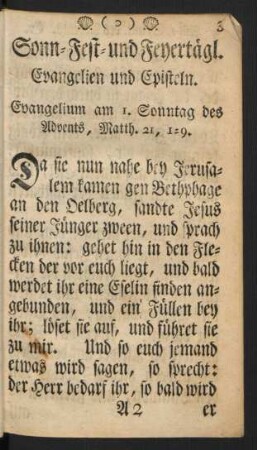 ( 0 ) 3
Sonn-Fest-und Feyertägl.
Evangelien und Episteln.
Evangelium am 1. Sonntag des
Advents, Matth. 21, 1-9.
Da sie nun nahe bey Jerusa-
lem kamen gen Bethphage
an den Oelberg, sandte Jesus
seiner Jünger zween, und sprach
zu ihnen: gehet hin in den Fle-
cken der vor euch liegt, und bald
werdet ihr eine Eselin finden an-
gebunden, und ein Füllen bey
ihr; löset sie auf, und führet sie
zu mir. Und so euch jemand
etwas wird sagen, so sprecht:
der Herr bedarf ihr, so bald wird
A 2 er